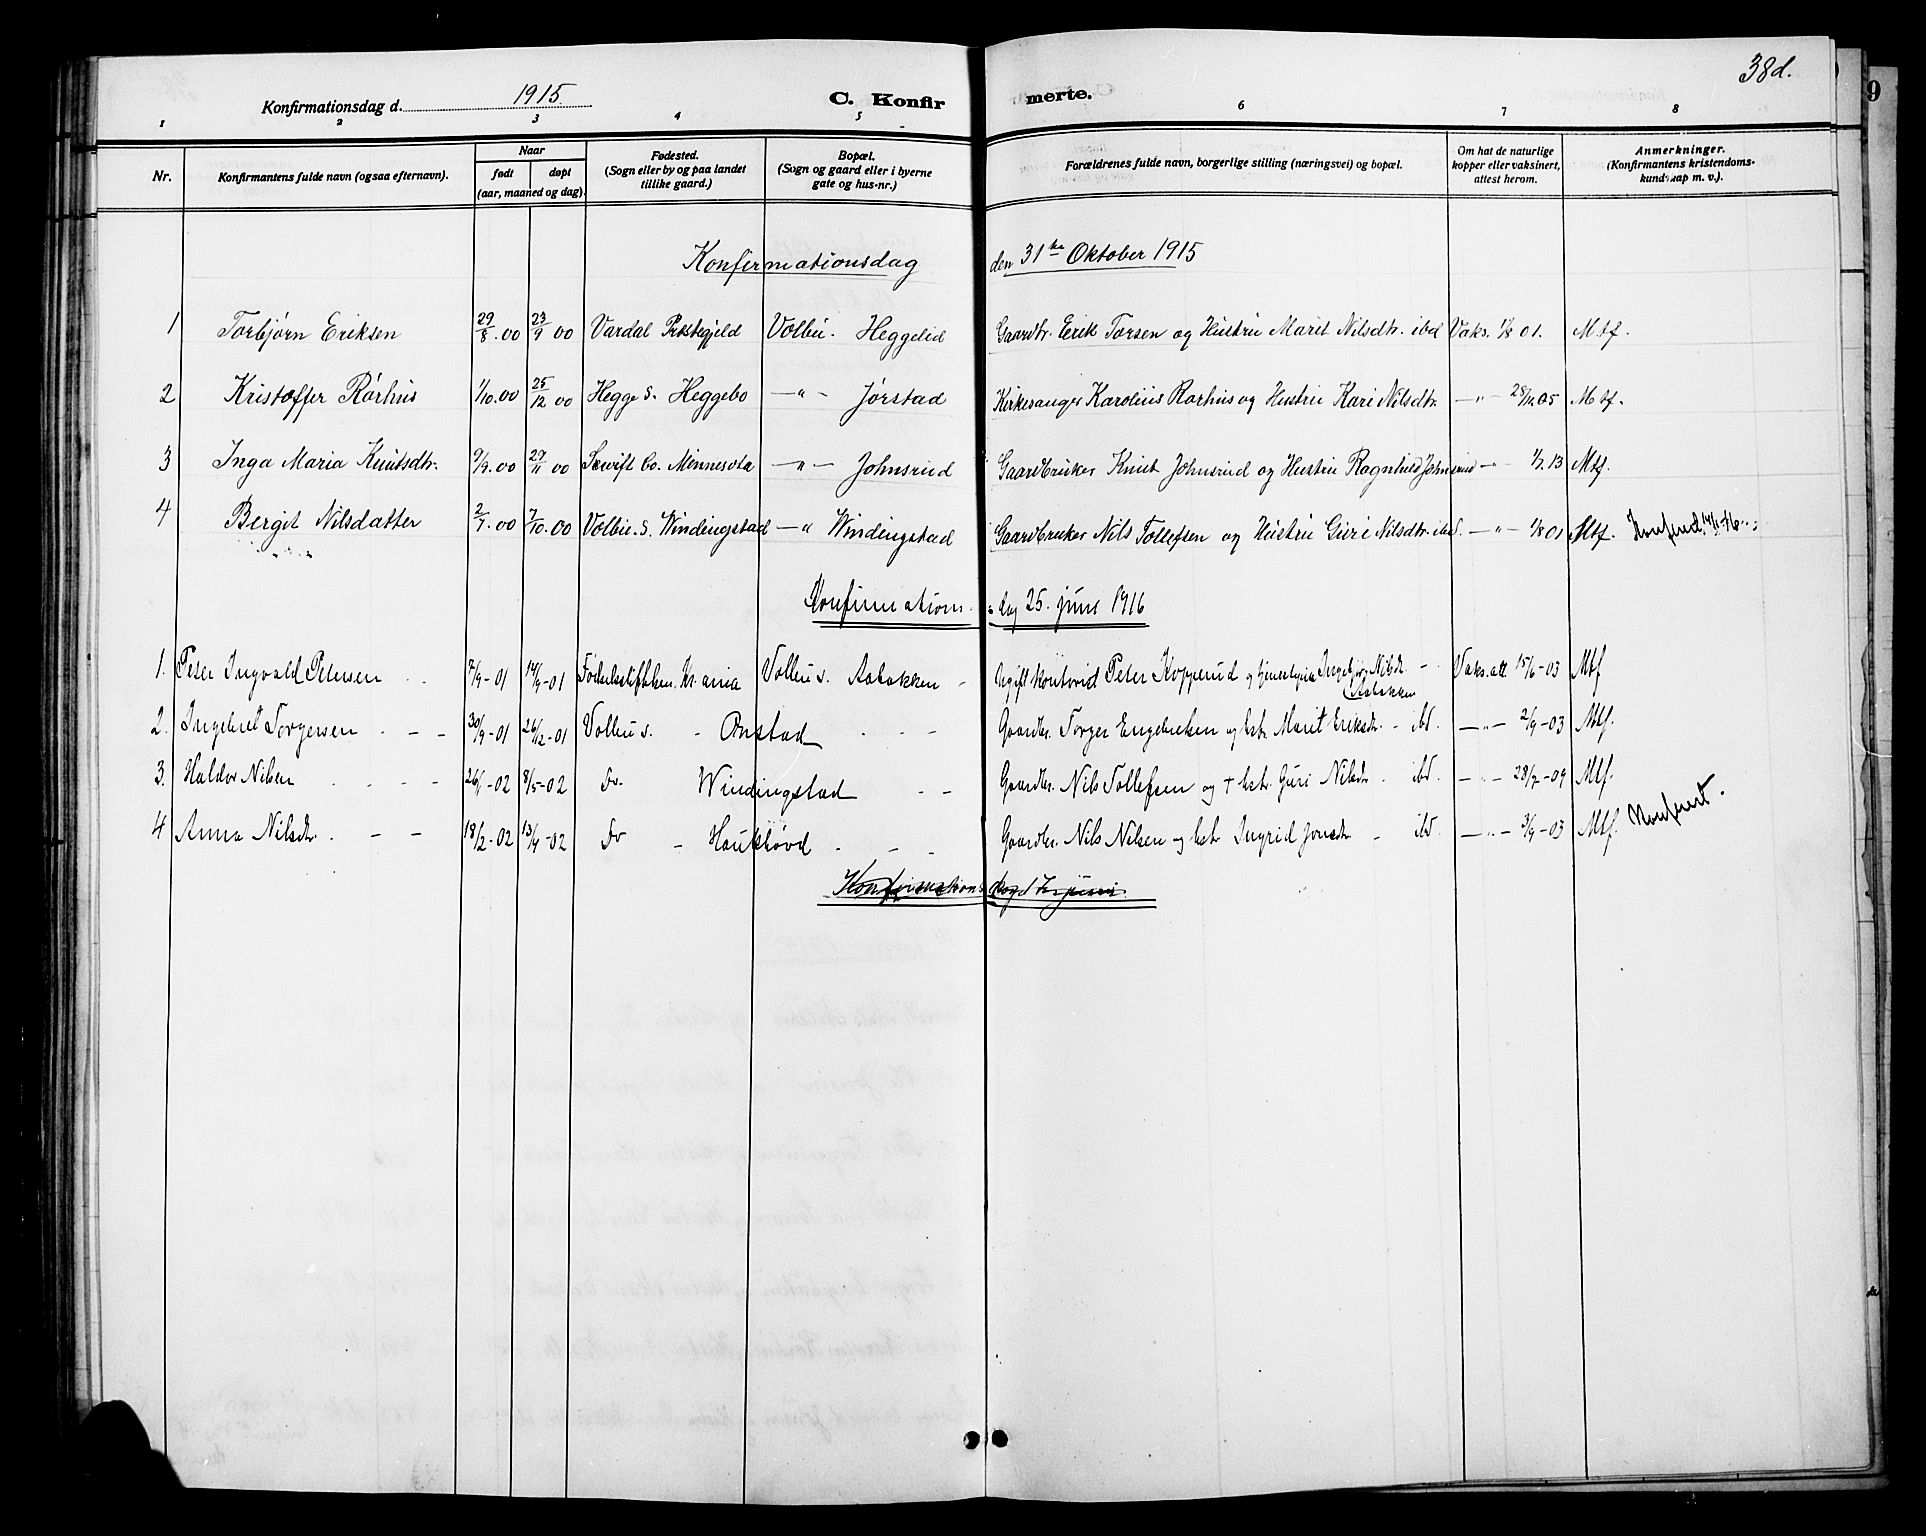 38d.
Konfirmationsdag d. 1915. C. Konfirmerte.
1 2 3 4 5 6 7 8
Nr. Konfirmantens fulde navn (ogsaa efternavn). Naar født døpt (aar, maaned og dag). Fødested. (Sogn eller by og paa landet tillike gaard.) Bopæl. (Sogn og gaard eller i byerne gate og hus-nr.) Forældrenes fulde navn, borgerlige stilling (næringsvei) og bopæl. Om hat de naturlige kopper eller vaksinert, attest herom. Anmerkninger. (Konfirmantens kristendomskundskap m. v.).
Konfirmationsdag den 31te Oktober 1915
1 Torbjørn Eriksen 29/8.00 23/9 00 Vardal Prestegjeld Volbu. Heggelid Gaardbr. Erik Torsen og Hustru Marit Nilsdtr. ibd Vaks. 1/8 01. Mtf.
2 Kristoffer Rørhus 1/10.00 25/12 00 Hegge s. Heggebo —"— Jørstad Kirkesanger Karolius Rørhus og Hustru Kari Nilsdtr. —"— 28/11.05 Mtf.
3 Inga Maria Knutsdtr. 9/9.00 29/11 00 Swift Co. Minnesota —"— Johnsrud Gaardbruker Knut Johnsrud og Hustru Ragnhild Johnsrud —"— 1/7 13 Mtf.
4 Bergit Nilsdatter 2/7.00 7/10.00 Volbu. s. Windingstad —"— Windingstad Gaardbruker Nils Tollefsen og Hustru Guri Nilsdtr. ibd. —"— 1/8 01 Mtf.
Konfirmationsdag 25. juni 1916
1. Peter Ingvald Petersen 7/9-01 14/9-01 Fødselsstiftelsen Kr.ania Volbu s. Aabakken Ugift Peter Kopperud og Ingebjørg Nilsdtr Aabakken Vaks.att 15/6-03 Mtf
2. Ingebret Torgersen 30/9-01 26/12-01 Volbu s. - Onstad Gaardbr. Torger Engebretsen og hstr. Marit Eriksdtr. - ibd. —"— 2/9-03 Mtf.
3. Haldor Nilsen 26/1-02 8/5-02 Do. Windingstad Gaardbr. Nils Tollefsen og + hstr. Guri Nilsdtr. ibd. —"— 28/7-09 Mtf.
4 Anna Nilsdtr. 18/2-02 13/4-02 Do - Haukhøvd Gaardbr. Nils Nilsen og hstr Ingrid Jonsdtr - ibd. —"— 3/9-03 Mtf. Konfauest.
Konfirmations